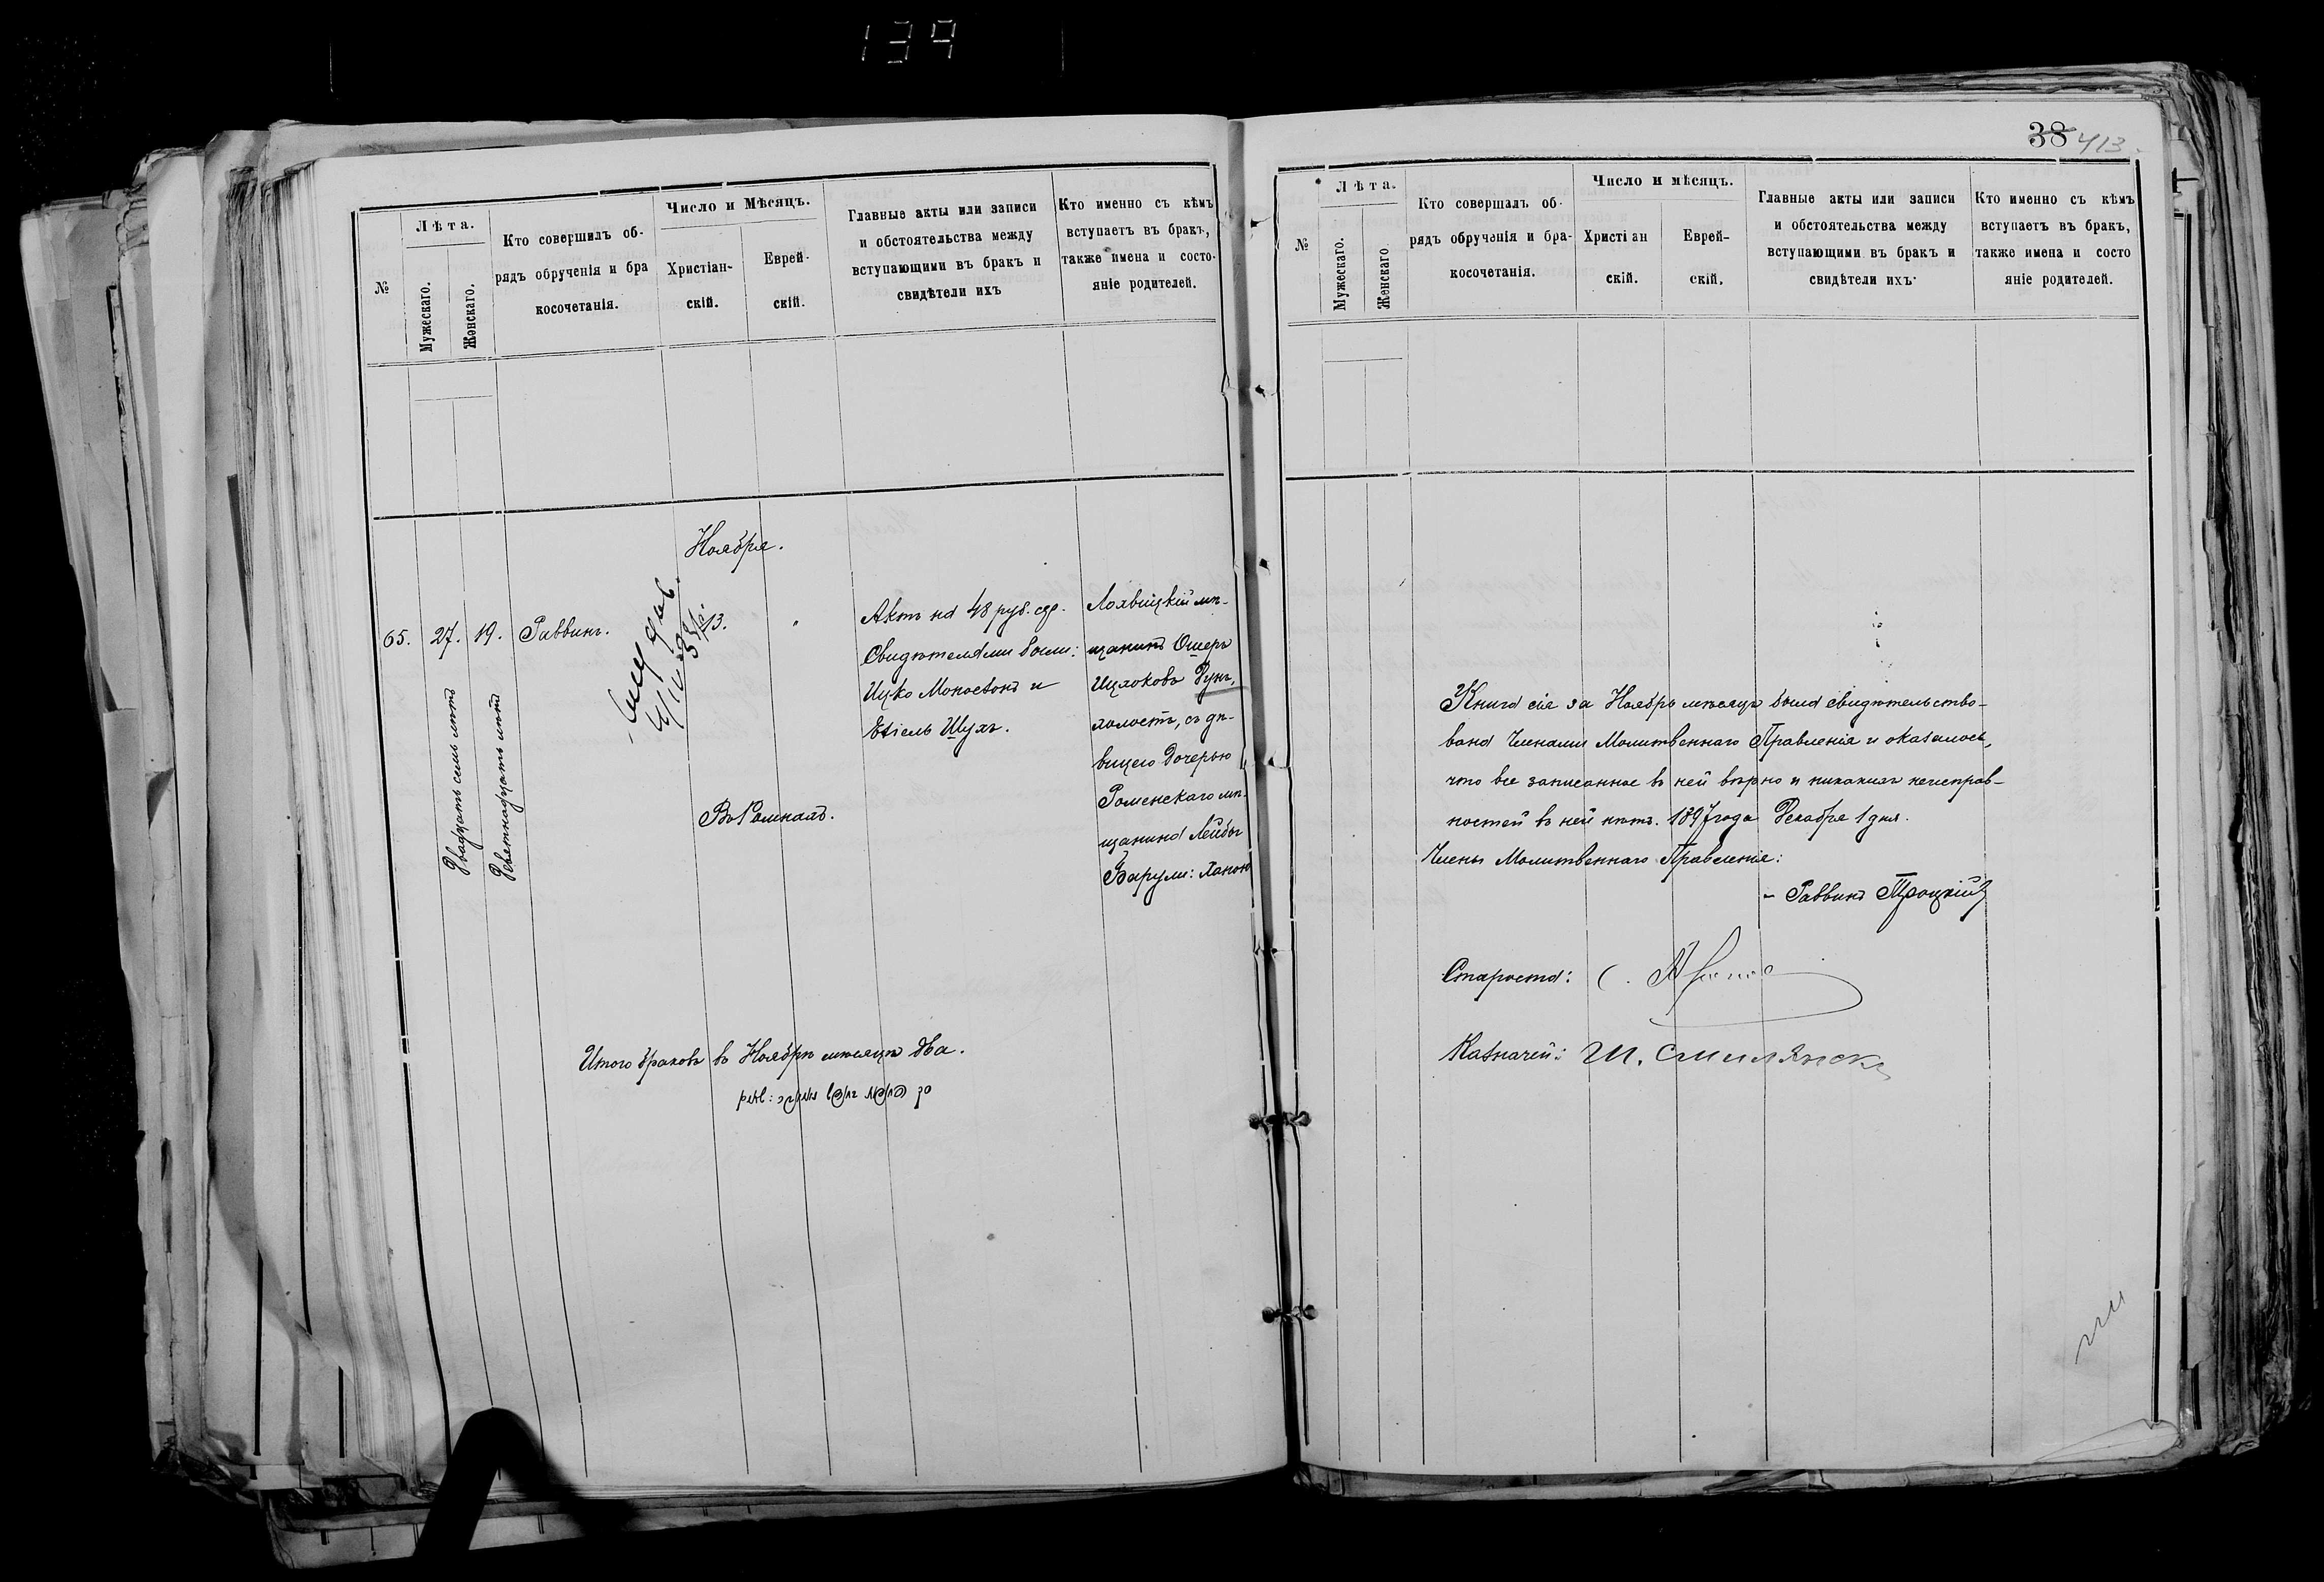 139
№
Лѣта.
Мужескаго.
Женскаго.
Кто совершилъ об-
рядъ обрученія и бра
косочетанія.
Число и Мѣсяцъ.
Христіан-
скій.
Еврей-
скій.
Главные акты или записи
и обстоятельства между
вступающими въ бракъ и
свидѣтели ихъ
Кто именно съ кѣмъ
вступаетъ въ бракъ,
также имена и состо-
яніе родителей.
Ноября.
65.
27.
19.
Двадцать семь лѣтъ
Девятнадцать лѣтъ
Раввинъ.
13.
Въ Ромнахъ.
Актъ на 48 руб. сер.
Свидѣтелями были:
Ицко Монастъ и
Шухъ.
Лохвицкій мѣ-
щанинъ Ошеръ
Ицхоковъ Рунъ,
холостъ, съ дѣ-
вицею дочерью
Роменскаго мѣ-
щанина Лейбы
Барули: Ханою
Итого браковъ въ Ноябрѣ мѣсяцѣ два.
38 413
№
Лѣта.
Мужескаго.
Женскаго.
Кто совершалъ об-
рядъ обрученія и бра-
косочетанія.
Число и мѣсяцъ.
Христіан
скій.
Еврей-
скій.
Главные акты или записи
и обстоятельства между
вступающими въ бракъ и
свидѣтели ихъ
Кто именно съ кѣмъ
вступаетъ въ бракъ,
также имена и состо
яніе родителей.
Книга сія за Ноябрь мѣсяцъ была свидѣтельство-
вана Членами Молитвеннаго Правленія и оказалось,
что все записанное въ ней вѣрно и никакихъ неисправ-
ностей въ ней нѣтъ. 1897 года Декабря 1 дня.
Члены Молитвеннаго Правленія:
- Раввинъ Троцкій
Староста:
Казначей: Ш. Смилянск